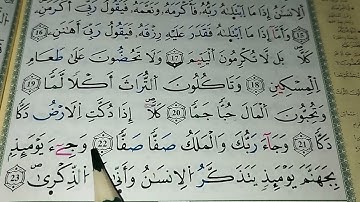 ٱلْإِنسَٰنُ إِذَا مَا ٱبْتَلَىٰهُ رَبُّهُۥ فَأَكْرَمَهُۥ وَنَعَّمَهُۥ فَيَقُولُ رَبِّىٓ أَكْرَمَنِ
١٥ وَأَمَّآ إِذَا مَا ٱبْتَلَىٰهُ فَقَدَرَ عَلَيْهِ رِزْقَهُۥ فَيَقُولُ رَبِّىٓ أَهَٰنَنِ ١٦
كَلَّا ۖ بَل لَّا تُكْرِمُونَ ٱلْيَتِيمَ ١٧ وَلَا تَحَٰٓضُّونَ عَلَىٰ طَعَامِ
ٱلْمِسْكِينِ ١٨ وَتَأْكُلُونَ ٱلتُّرَاثَ أَكْلًا لَّمًّا ١٩
وَتُحِبُّونَ ٱلْمَالَ حُبًّا جَمًّا ٢٠ كَلَّآ إِذَا دُكَّتِ ٱلْأَرْضُ دَكًّا
دَكًّا ٢١ وَجَآءَ رَبُّكَ وَٱلْمَلَكُ صَفًّا صَفًّا ٢٢ وَجِا۟ىٓءَ يَوْمَئِذٍۭ
بِجَهَنَّمَ ۚ يَوْمَئِذٍ يَتَذَكَّرُ ٱلْإِنسَٰنُ وَأَنَّىٰ ٱلذِّكْرَىٰ ٢٣